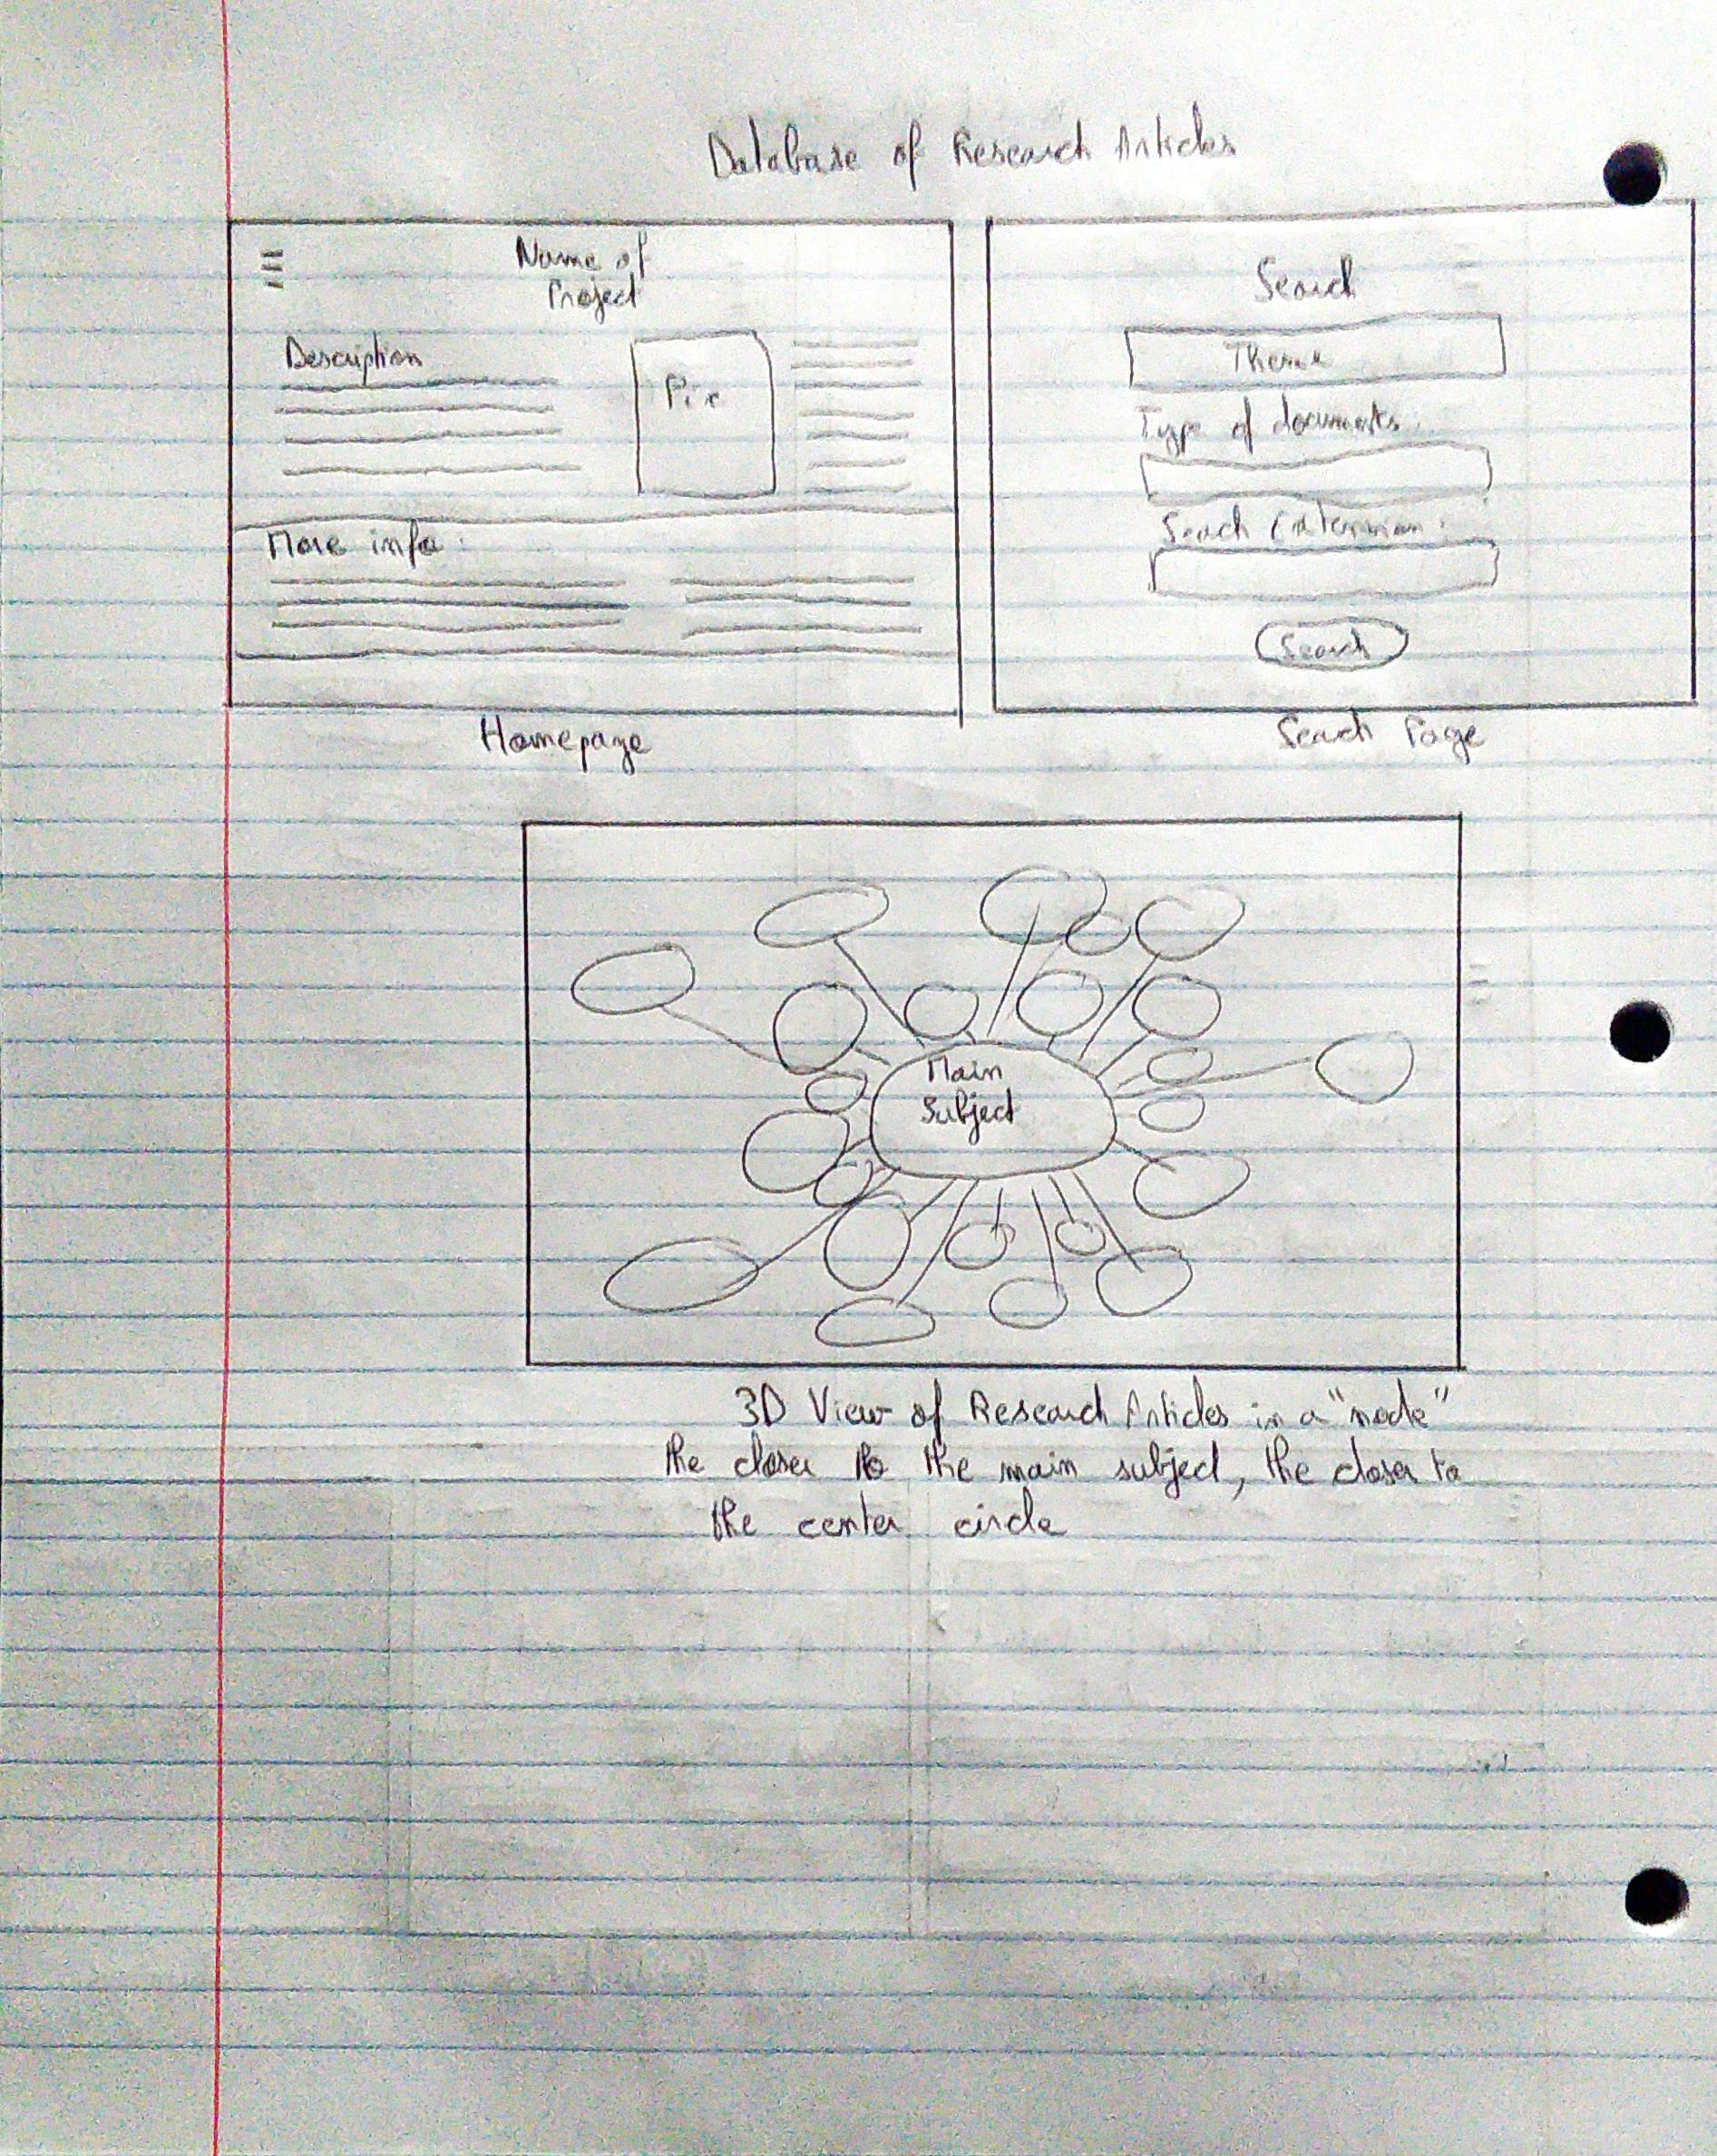 Database of Research Articles
Name of
Project
Description
Pic
More info:
Homepage
Search
Theme
Type of documents:
Search Criterion:
Search
Search Page
Main
Subject
3D View of Research Articles in a "node"
the closer to the main subject, the closer to
the center circle